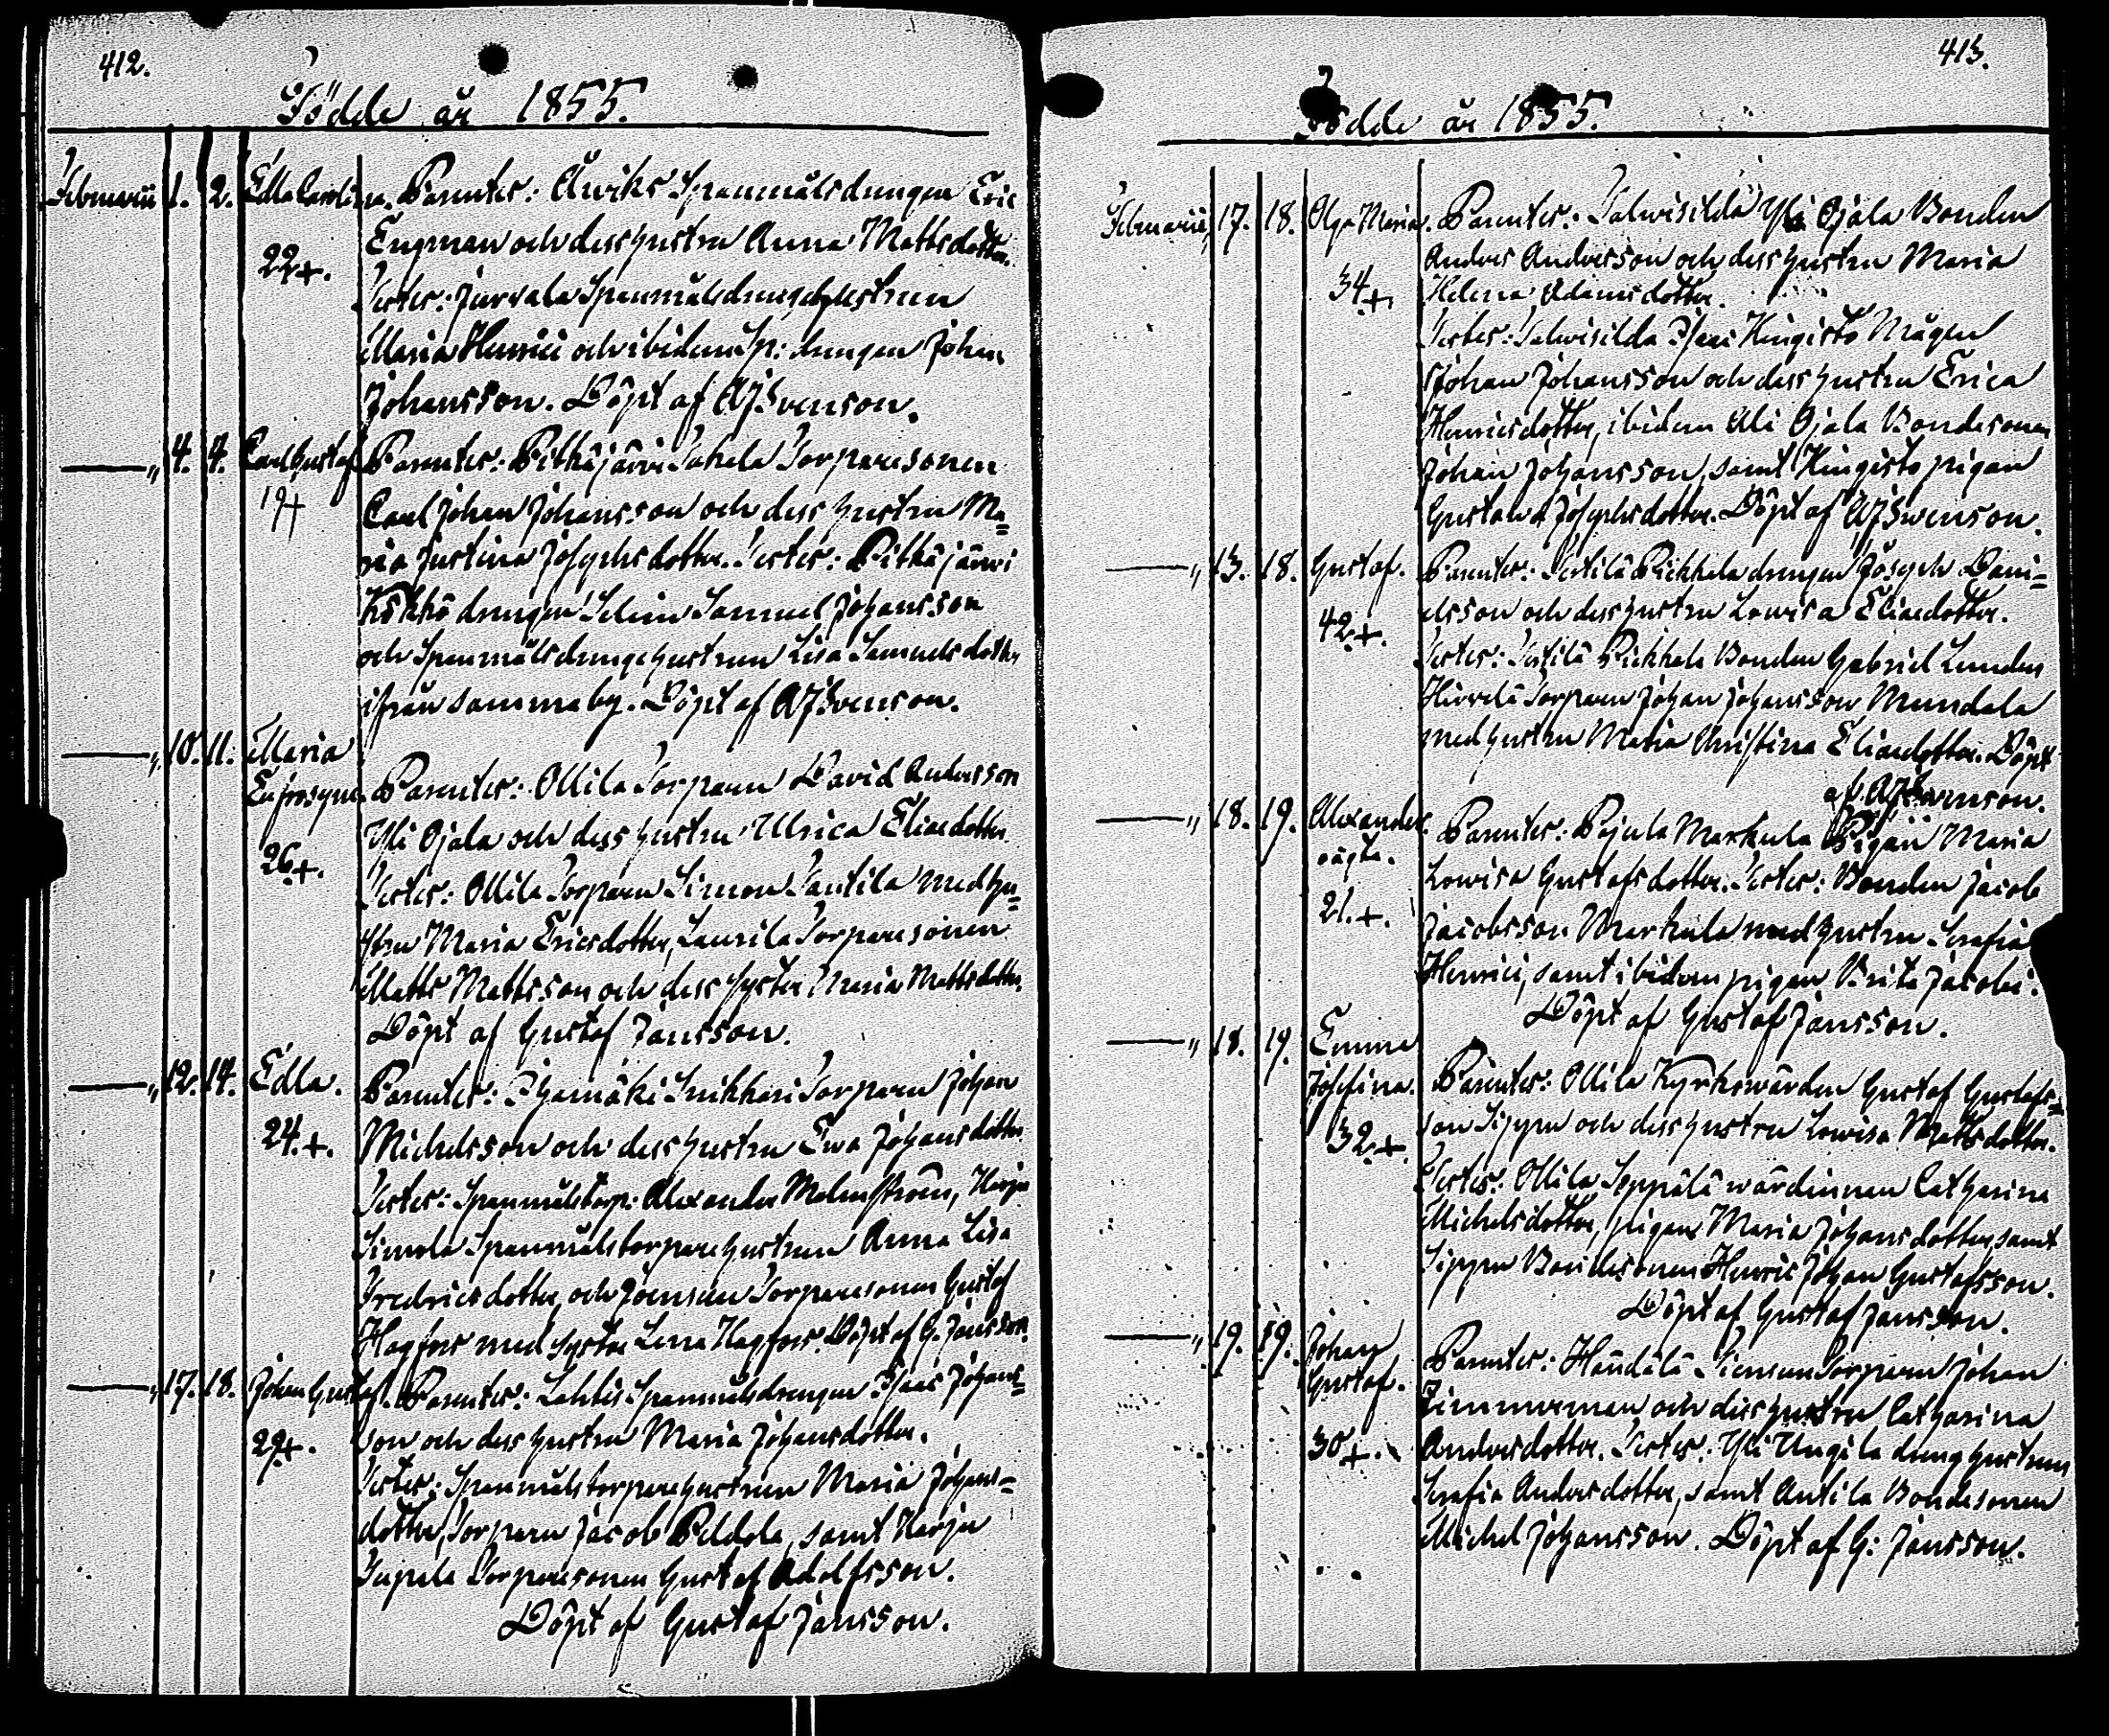 412.
Födde år 1855.
Februarii 1. 2. Edla Carolina. Parentes: Åwiks Spanmålsdrengen Eric
Engman och dess hustru Anna Mattsdotter.
22+. Testes: Jurvala Spanmålsdrengehustrun
Maria Henrici och ibidem Sp: drengen Johan
Johansson. Döpt af AJSvenson.
" 4. 4. Carl Gustaf. Parentes: Pitkäjärvi Torparesonen
19+ Carl Johan Johansson och dess hustru Ma=
ria Justina Josephsdotter. Testes: Pitkäjärvi
drengen Selim Samuel Johansson
och Spanmålsdrengehustrun Lisa Samuelsdotter
ifrån samma by. Döpt af AJSvenson.
" 10. 11. Maria
Eufrosyne. Parentes: Ollila Torparen David Andersson
Yli Ojala och dess hustru Ulrica Eliaedotter.
26+. Testes: Ollila Torparen Simon Santila med hu=
stru Maria Ericsdotter, Laurila Torparesonen
Matts Mattsson och dess syster Maria Mattsdotter.
Döpt af Gustaf Jansson.
" 12. 14. Edla. Parentes: Torparen Johan
24.+. Michelsson och dess hustru Ewa Johansdotter
Testes: Spanmålstorp: Alexander Malmström, Harju
Simola Spanmålstorparehustrun Anna Lisa
Fredricsdotter, och Torparesonen Gustaf
Hagfors med syster Lena Hagfors. Döpt af G. Jansson.
" 17. 18. Johan Gustaf. Parentes: Lahtis Spanmålsdrengen Isaac Johans=
29+. son och dess hustru Maria Johansdotter.
Testes: Spanmålstorparehustrun Maria Johans=
dotter, Torparen Jacob Peldola, samt Harju
Torparesonen Gustaf Adolfsson.
Döpt af Gustaf Jansson.
413.
Födde år 1855.
Februarii, 17. 18. Olga Maria. Parentes: Talwisilda Yli Ojala Bonden
Anders Andersson och dess hustru Maria
34+, Helena Adamsdotter.
Testes: Talwisilda Kingisto Mågen
Johan Johansson och dess hustru Erica
Henricsdotter, ibidem Ali Ojala Bondesonen
Johan Johansson, samt Kingisto pigan
Gustava Josephsdotter. Döpt af AJSvenson.
" 13. 18. Gustaf. Parentes: Sertilä Pickkala drengen Joseph Dani=
elsson och dess hustru Lowisa Eliaedotter.
42+. Testes: Sertilä Pickkala Bonden Gabriel Lunden
Hirvelä Torparen Johan Johansson Mundala
med hustru Maria Christina Eliaedotter. Döpt
af AJSvenson.
" 18. 19. Alexander. Parentes: Pajula Markula Pigan Maria
oägta. Lowisa Gustafsdotter. Testes: Bonden Jacob
21.+. Jacobsson Markula med hustru Serafia
Henrici, samt ibidem pigan Brita Jacobi.
Döpt af Gustaf Jansson.
" 18. 19. Emma
Josefina. Parentes: Ollila Kyrkowärden Gustaf Gustafs=
32.+ son Sippu och dess hustru Lowisa Mattsdotter.
Testes: Ollila Seppälä wärdinnan Catharina
Michelsdotter, pigan Maria Johansdotter, samt
Bondesonen Henric Johan Gustafsson.
Döpt af Gustaf Jansson.
" 19. 19. Johan
Gustaf. Parentes: Handälä Torparen Johan
Zimmerman och dess hustru Catharina
30+. Andersdotter. Testes: Yli Ungila drenghustrun
Serafia Andersdotter, samt Antila Bondesonen
Michel Johansson. Döpt af G: Jansson.